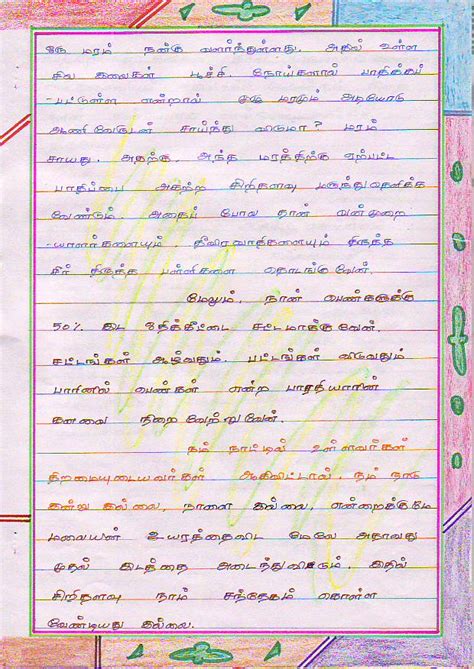 ஒரு மரம் நன்கு வளர்ந்துள்ளது. அதில் உள்ள
சில இலைகள் பூச்சி, நோய்களால் பாதிக்கப்
-பட்டுள்ள என்றால் முழு மரமும் அடியோடு
ஆணி வேருடன் சாய்ந்து விடுமா? மரம்
சாயாது. அதற்கு, அந்த மரத்திற்கு ஏற்பட்ட
பாதிப்பை அகற்ற சிறிதளவு மருந்து தெளிக்க
வேண்டும். அதைப் போல நான் வன்முறை
-யாளர்களையும், தீவிரவாதிகளையும் திருத்த
சீர் திருத்த பள்ளிகளை தொடங்குவேன்.
மேலும், நான் பெண்களுக்கு
50% இட ஒதிக்கீட்டை சட்டமாக்குவேன்.
சட்டங்கள் ஆழ்வதும், பட்டங்கள் விடுவதும்
பாரினில் பெண்கள் என்ற பாரதியாரின்
கனவை நிறைவேற்றுவேன்.
நம் நாட்டில் உள்ளவர்கள்
திறமையுடையவர்கள் ஆகிவிட்டால், நம் நாடு
இன்று இல்லை, நாளை இல்லை, என்றைக்குமே
மலையின் உயரத்தைவிட மேலே அதாவது
முதல் இடத்தை அடைந்துவிடும். இதில்
சிறிதளவு நாம் சந்தேகம் கொள்ள
வேண்டியது இல்லை.